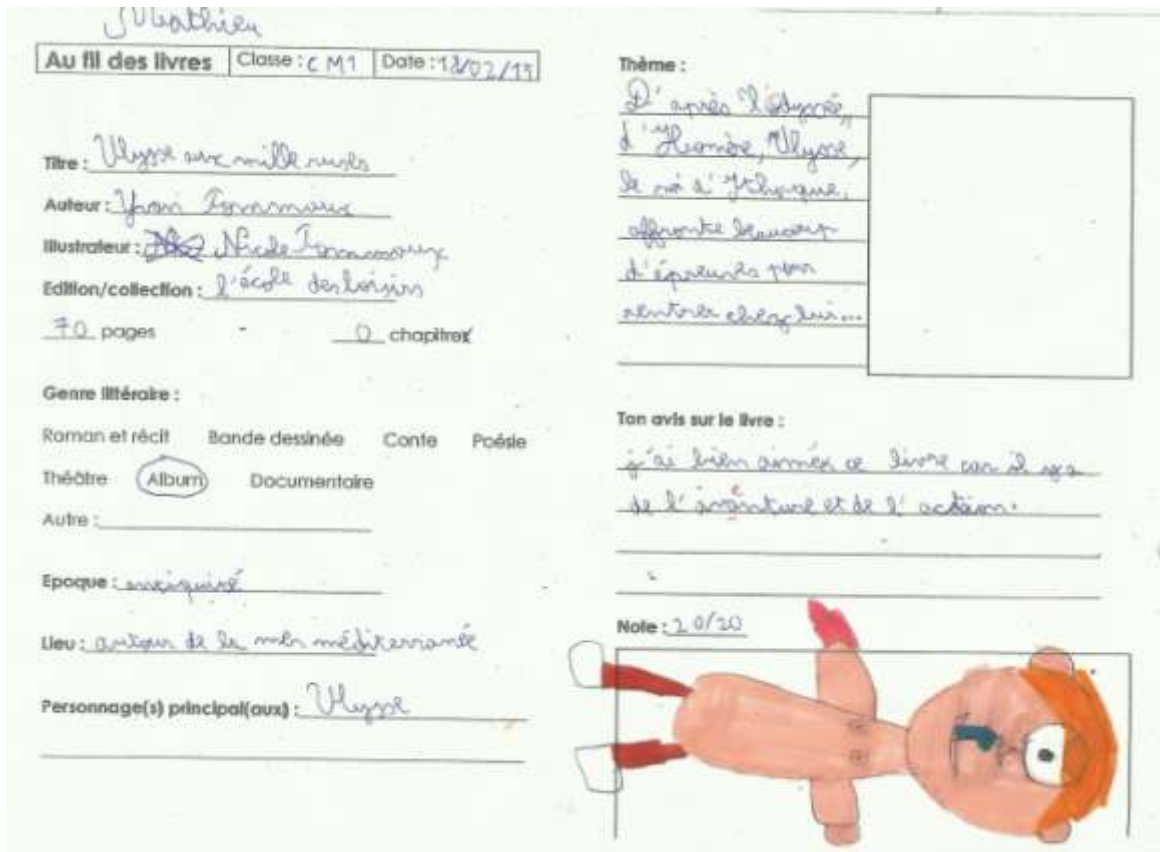 Mathieu
Au fil des livres Classe : CM1 Date : 18/02/19
Titre : Ulysse aux mille ruses
Auteur : Yvan Pommaux
Illustrateur : Nicole Pommaux
Edition/collection : l'école des loisirs
70 pages - 0 chapitre
Genre littéraire :
Roman et récit Bande dessinée Conte Poésie
Théâtre Album Documentaire
Autre :
Epoque :
Lieu : autour de la mer méditerranée
Personnage(s) principal(aux) : Ulysse
Thème :
D'après l'
d'Homère, Ulysse,
le roi d'
affronte beaucoup
d'épreuves pour
rentrer chez lui...
Ton avis sur le livre :
j'ai bien aimés ce livre car il y a
de l'aventure et de l'action.
Note : 20/20